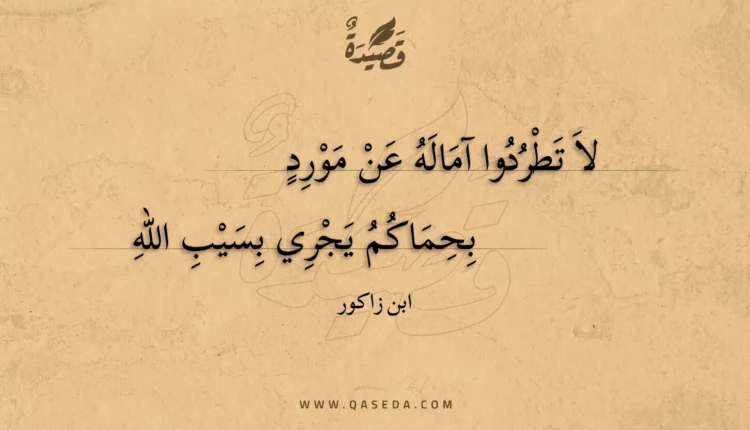 قَصِيْدَةٌ
لاَ تَطْرُدُوا آمَالَهُ عَنْ مَوْرِدٍ
بِحِمَاكُمُ يَجْرِي بِسَيْبِ اللَّهِ
ابن زاكور
WWW.QASEDA.COM